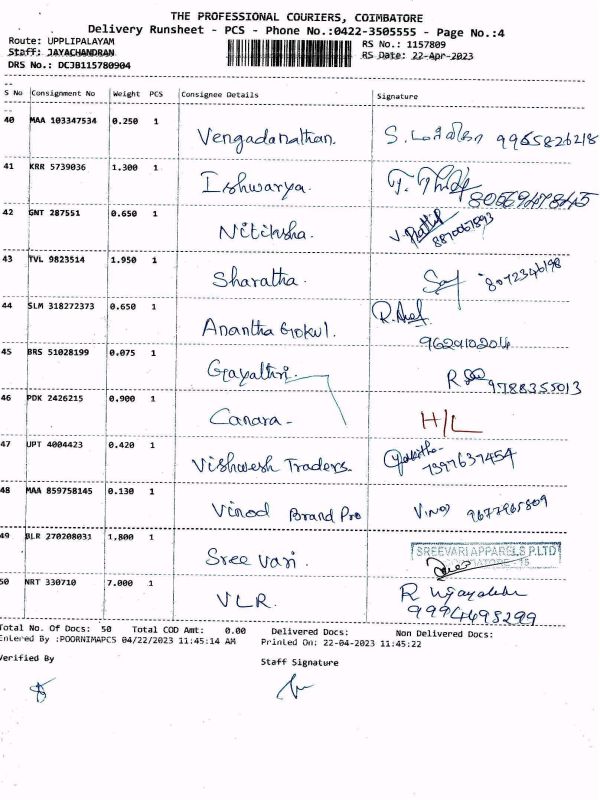 THE PROFESSIONAL COURIERS, COIMBATORE
Delivery Runsheet - PCS - Phone No.:0422-3505555 - Page No.:4
Route: UPPLIPALAYAM RS No.: 1157809
Staff: JAYACHANDRAN RS Date: 22-Apr-2023
DRS No.: DCJB115780904
S No Consignment No Weight PCS Consignee Details Signature
40 MAA 103347534 0.250 1 Vengadanathan. 9965826218
41 KRR 5739036 1.300 1 Ishwarya. 8056947845
42 GNT 287551 0.650 1 Nitiksha. 8870067893
43 TVL 9823514 1.950 1 Sharatha. 8072346198
44 SLM 318272373 0.650 1 Anantha Gokul. 9629102014
45 BRS 51028199 0.075 1 Gayathri. 9788355013
46 PDK 2426215 0.900 1 Canara - H/L
47 UPT 4004423 0.420 1 Vishwesh Traders. 7397637454
48 MAA 859758145 0.130 1 Vinod Brand Pro Vinod 9677965809
49 BLR 270208031 1.800 1 Sree vari. SREEVARI APPARELS P.LTD
50 NRT 330710 7.000 1 VLR. R 9994498299
Total No. Of Docs: 50 Total COD Amt: 0.00 Delivered Docs: Non Delivered Docs:
Entered By :POORNIMAPCS 04/22/2023 11:45:14 AM Printed On: 22-04-2023 11:45:22
Verified By Staff Signature